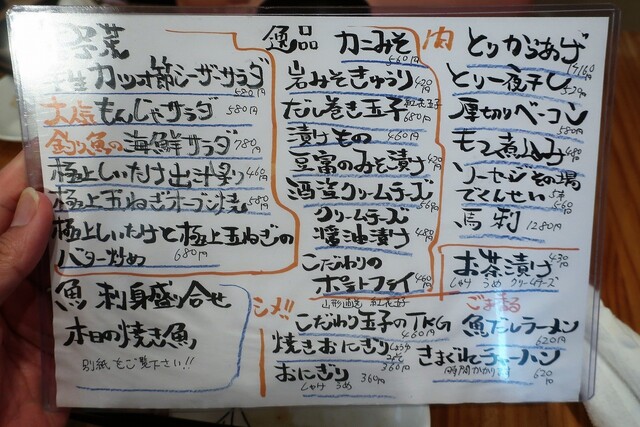 野菜
生カツオ節シーザーサラダ
580円
大人気もんじゃサラダ 580円
釣り魚の海鮮サラダ 780円
極上しいたけ出汁炙り 460円
極上玉ねぎオーブン焼 580円
極上しいたけと極上玉ねぎの
バター炒め 680円
魚 刺身盛り合せ
本日の焼き魚
別紙をご覧下さい!!
逸品 カニみそ
560円
岩みそきゅうり 420円
だし巻き玉子 紅花玉子
680円
漬けもの 460円
豆富のみそ漬け 420円
酒盗クリームチーズ
560円
クリームチーズ
醤油漬け 480円
こだわりの
ポテトフライ 460円
肉 とりからあげ
とり一夜干し 520円
厚切りベーコン
580円
モツ煮込み 480円
ソーセージその場
でくんせい 5本
560円
馬刺 1280円
お茶漬け 430円
しゃけ うめ クリームチーズ
シメ!! 山形直送 紅花玉子
こだわり玉子のTKG
460円
焼きおにぎり しょうゆ
みそ
360円
おにぎり 360円
しゃけ うめ
魚だしラーメン
620円
きまぐれチャーハン
時間かかります 620円